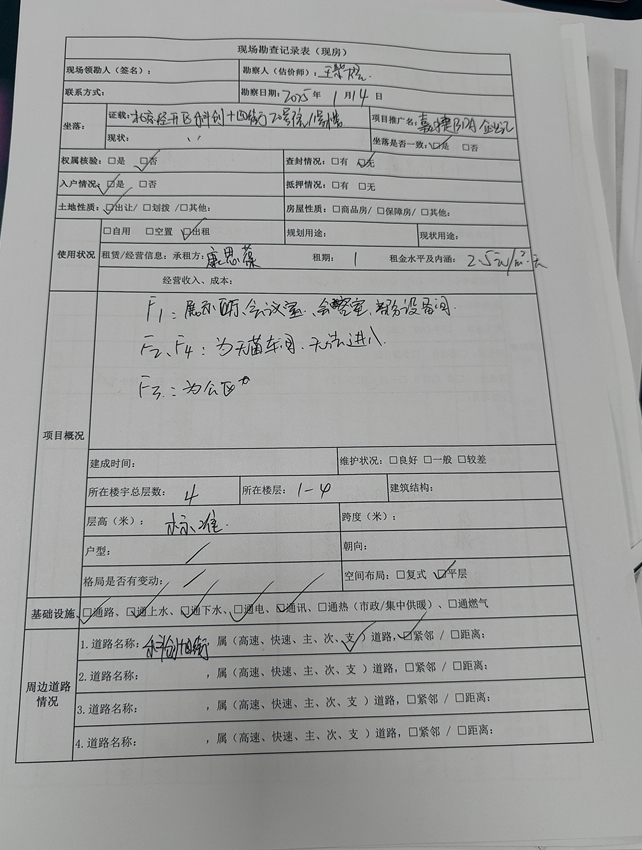 现场勘查记录表（现房）
现场领勘人（签名）： 勘察人（估价师）：
联系方式： 勘察日期：2025年 1月14日
坐落： 证载：北京经开区科创十四街 20号院 项目推广名：嘉捷
现状： 〃 坐落是否一致：☑是 □否
权属核验：□是 ☑否 查封情况：□有 ☑无
入户情况：☑是 □否 抵押情况：□有 □无
土地性质：☑出让/□划拨 /□其他: 房屋性质：□商品房/□保障房/□其他:
使用状况 □自用 □空置 ☑出租 规划用途： 现状用途：
租赁/经营信息：承租方：康思葆 租期： 1 租金水平及内涵：2.5元/m²·天
经营收入、成本：
项目概况
F1：展示、会议室、会客室、部分设备间.
F2、F4：为无菌车间、无法进入
F3：为公区
建成时间： 维护状况：□良好 □一般 □较差
所在楼宇总层数： 4 所在楼层：1-4 建筑结构：
层高（米）： 标准. 跨度（米）：
户型： / 朝向：
格局是否有变动： / 空间布局：□复式 ☑平层
基础设施、 ☑通路、☑通上水、☑通下水、☑通电、☑通讯、□通热（市政/集中供暖）、□通燃气
周边道路情况
1.道路名称：科创十四街，属（高速、快速、主、次、支✓）道路，☑紧邻 /□距离:
2.道路名称： ，属（高速、快速、主、次、支 ）道路，□紧邻 / □距离:
3.道路名称： ，属（高速、快速、主、次、支 ）道路，□紧邻 / □距离:
4.道路名称： ，属（高速、快速、主、次、支 ）道路，□紧邻 / □距离: